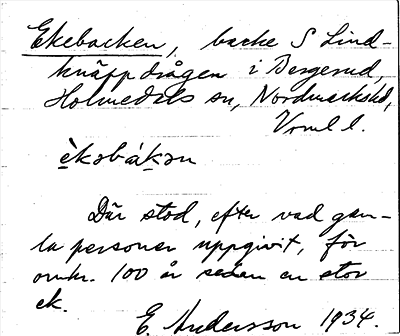 Ekebacken, backe S Lind-
knäppdrågen i Bergerud,
Holmedals sn, Nordmarks hd,
Vrml l.
è̱kobák̠ən
Där stod, efter vad gam-
la personer uppgivit, för
omkr. 100 år sedan en stor
ek.
E. Andersson 1934.